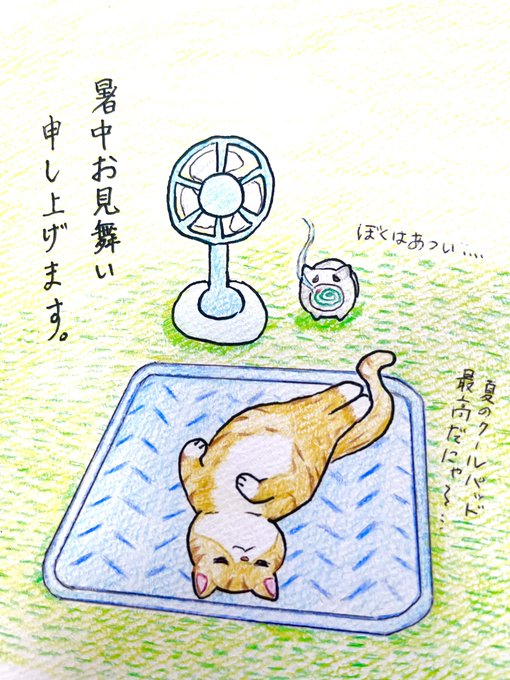 暑中お見舞い
申し上げます。
ぼくはあつい....
夏のクールパッド
最高だにゃ〜...